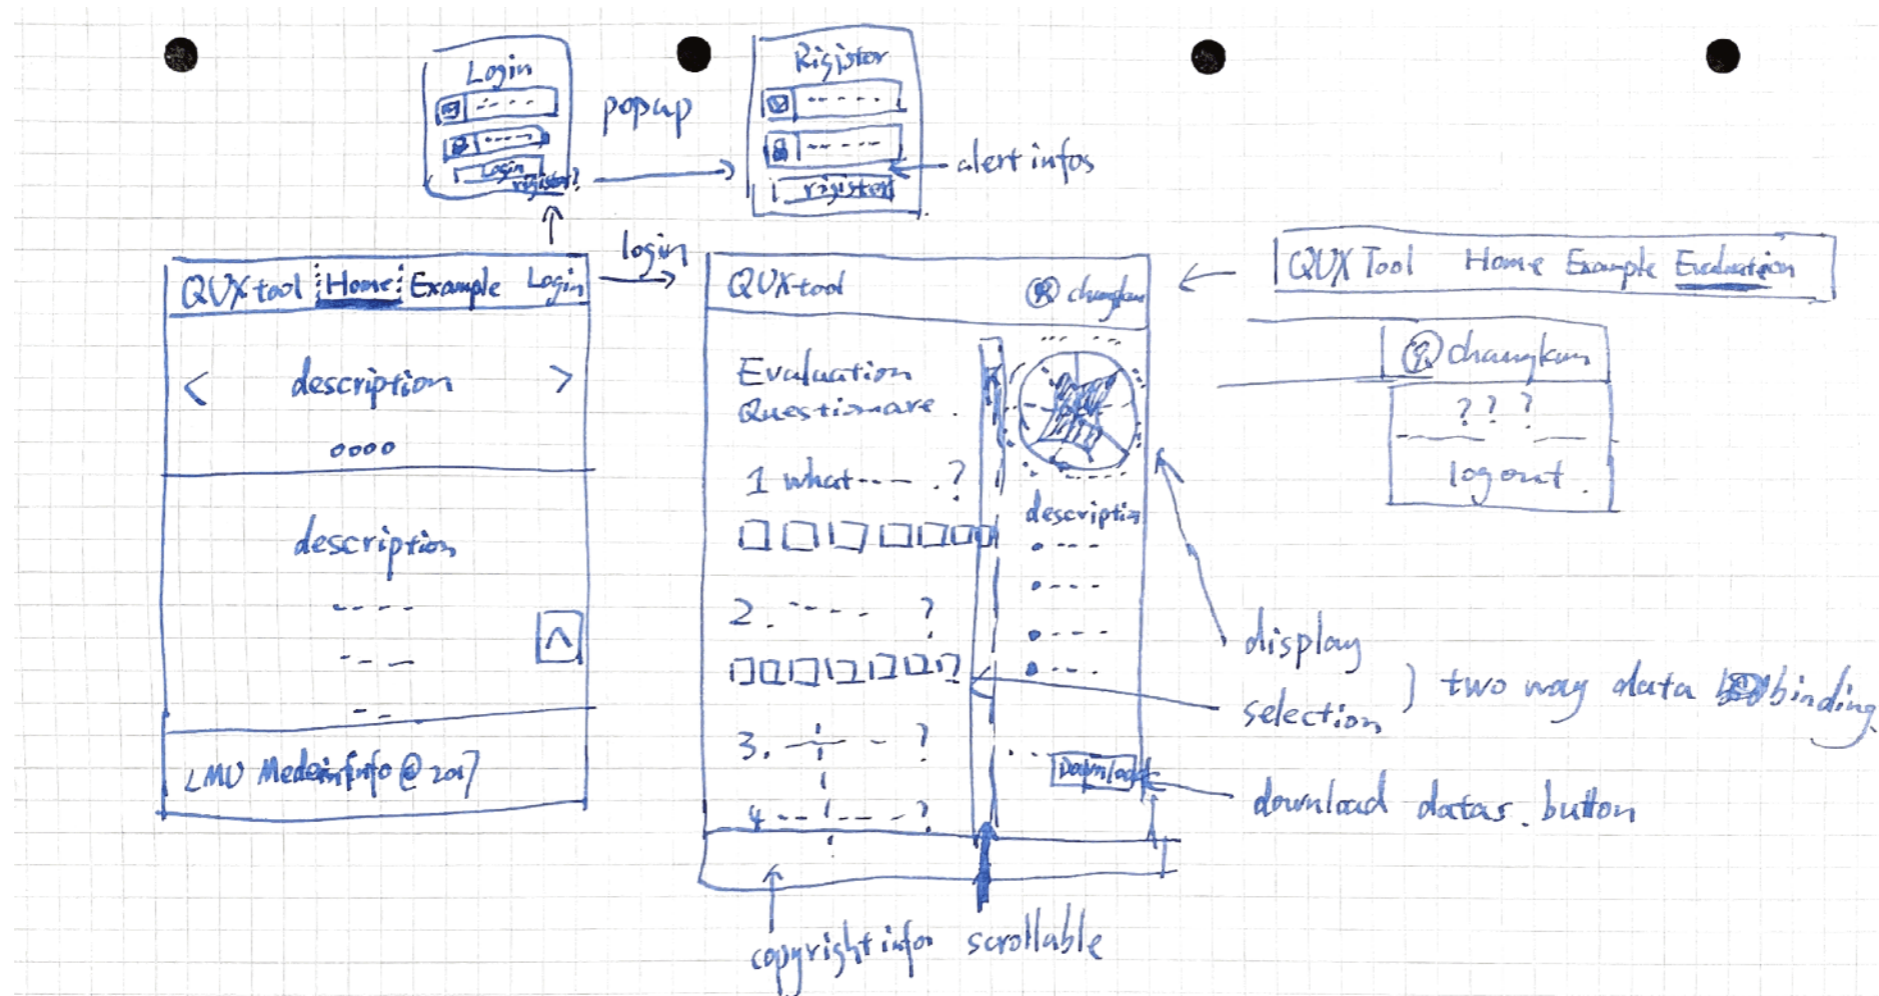 Login
Login
rigister?
popup
Rigister
rigister
alert infos
login
QUX tool Home Example Login
< description >
description
LMU Medeinfnfo @ 2017
QUX tool changkun
Evaluation
Questionare.
1 what ---- . ?
2. ---- ?
3. ---- ?
4 ---- ?
description
Download
QUX Tool Home Example Evaluation
changkun
? ? ?
logout.
display
selection
) two way data binding
download datas. button
copyright infos
scrollable